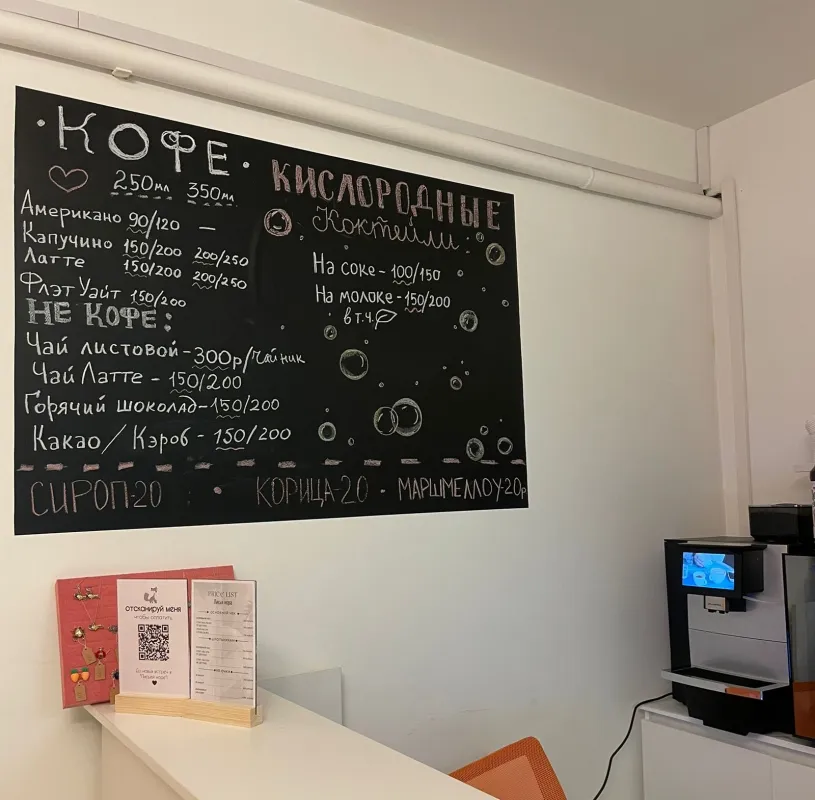 • КОФЕ •
250мл 350мл
Американо 90/120 —
Капучино 150/200 200/250
Латте 150/200 200/250
Флэт Уайт 150/200
НЕ КОФЕ:
Чай листовой - 300р/чайник
Чай Латте - 150/200
Горячий шоколад - 150/200
Какао / Кэроб - 150/200
КИСЛОРОДНЫЕ
Коктейли:
На соке - 100/150
На молоке - 150/200
в т.ч.
СИРОП-20 • КОРИЦА-20 • МАРШМЕЛЛОУ-20р
отсканируй меня
чтобы оплатить
PRICE LIST